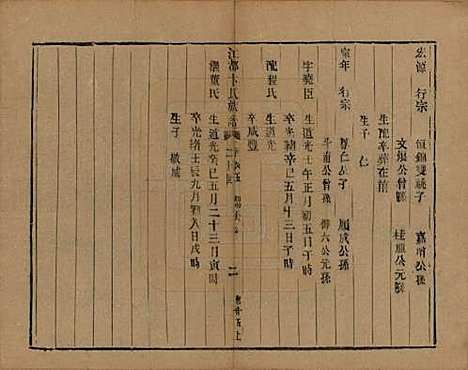 宏源 行宗
恒錦雙祧子 嘉珩公孫
文煥公曾孫 桂公元孫
生配卒葬在前
生子 仁
宗年 行宗
仁公子 成公孫
斗南公曾孫 御六公元孫
字堯臣
生道光壬午正月初五月子時
卒光緒辛巳五月十三日子時
配程氏
生道光
卒咸豐
江都卞氏族譜 二
繼董氏
生道光辛巳五月二十三日寅時
卒光緒壬辰九月初八日戌時
生子 敬咸